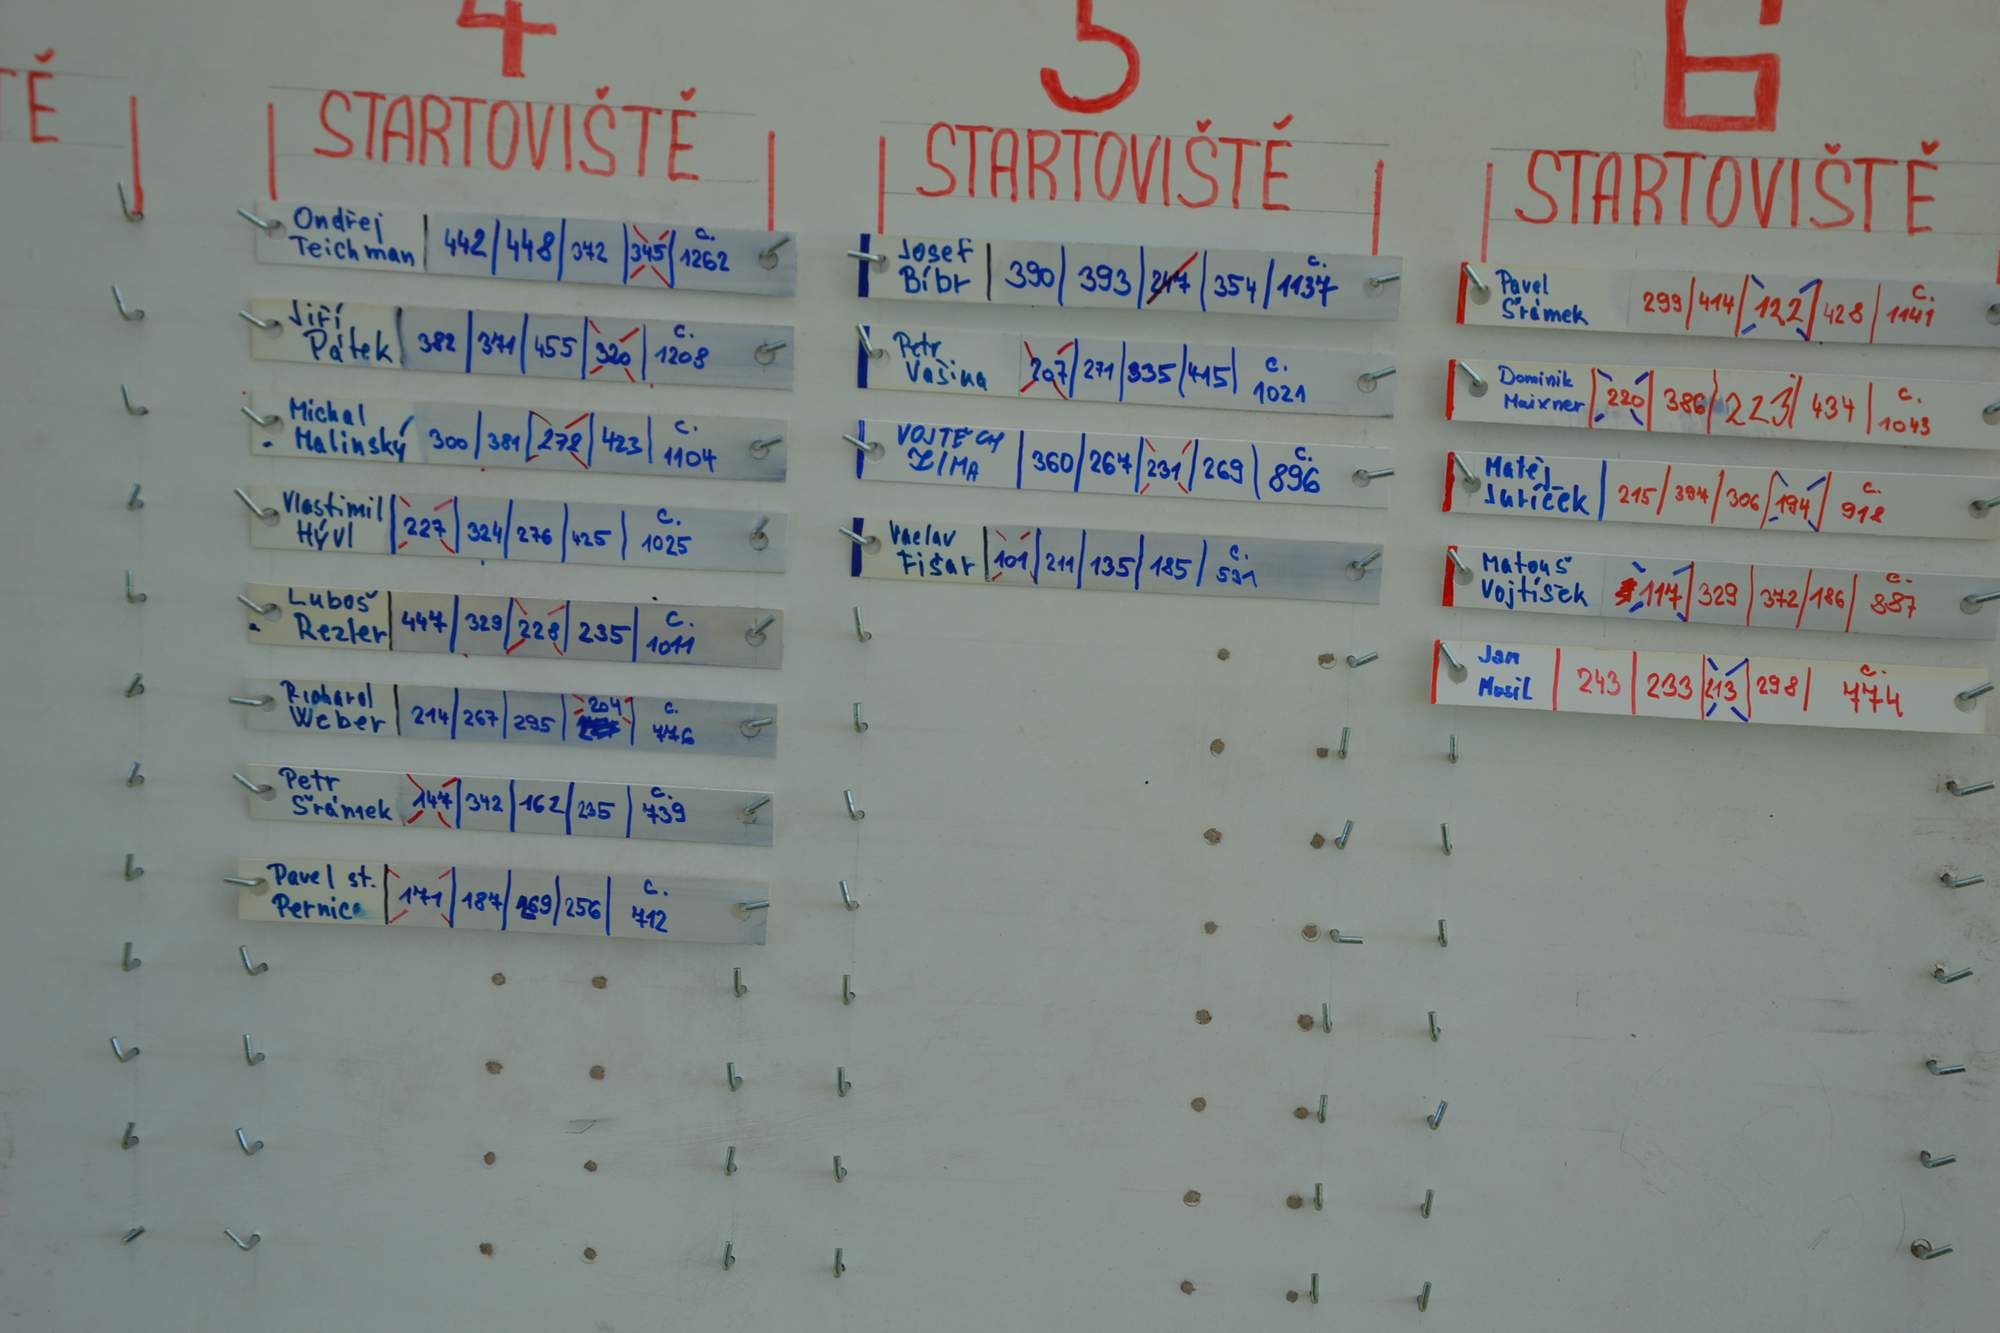 TĚ
4
STARTOVIŠTĚ
Ondřej
Teichman 442 448 372 345 c. 1262
Jiří
Pátek 382 371 455 320 c. 1208
Michal
Malinský 300 381 272 423 c. 1104
Vlastimil
Hývl 227 324 276 425 c. 1025
Luboš
Rezler 447 329 228 235 c. 1011
Richard
Weber 214 267 295 204 c. 776
Petr
Šrámek 147 342 162 235 c. 739
Pavel st.
Pernica 171 187 269 256 c. 712
5
STARTOVIŠTĚ
Josef
Bíbr 390 393 247 354 c. 1137
Petr
Vašina 207 271 335 415 c. 1021
VOJTĚCH
ZIMA 360 267 231 269 c. 896
Vaclav
Fišar 101 211 135 185 c. 531
6
STARTOVIŠTĚ
Pavel
Šrámek 299 414 122 428 c. 1141
Dominik
Maixner 220 386 223 434 c. 1043
Matěj
Juříček 215 397 306 194 c. 918
Matouš
Vojtíšek 117 329 372 186 c. 887
Jan
Mosil 243 233 213 298 c. 774